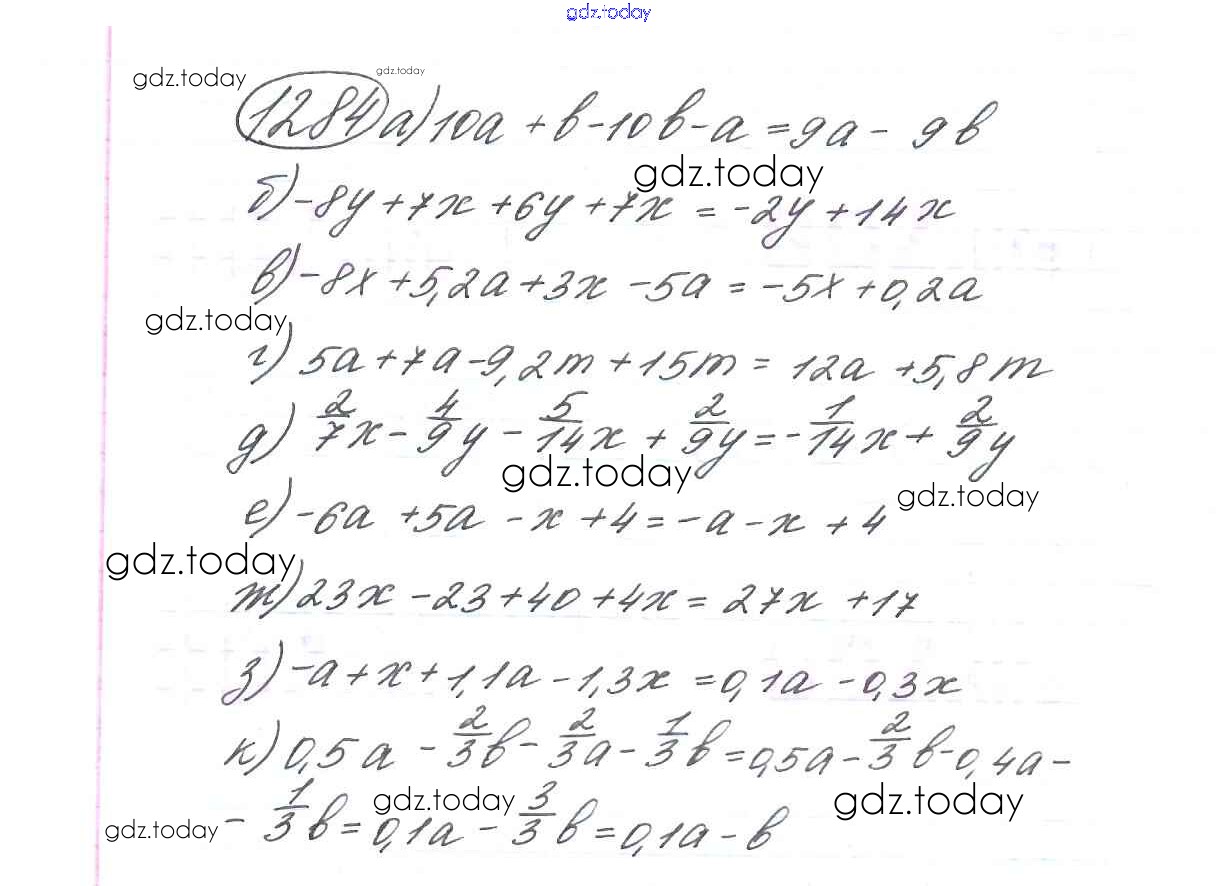 gdz.today
gdz.today gdz.today
1284 а) 10a + b - 10b - a = 9a - 9b
gdz.today
б) -8y + 7x + 6y + 7x = -2y + 14x
в) -8x + 5,2a + 3x - 5a = -5x + 0,2a
gdz.today
г) 5a + 7a - 9,2m + 15m = 12a + 5,8m
д) 2/7x - 4/9y - 5/14x + 2/9y = -1/14x + 2/9y
gdz.today gdz.today
е) -6a + 5a - x + 4 = -a - x + 4
gdz.today
ж) 23x - 23 + 40 + 4x = 27x + 17
з) -a + x + 1,1a - 1,3x = 0,1a - 0,3x
к) 0,5a - 2/3b - 2/3a - 1/3b = 0,5a - 2/3b - 0,4a -
gdz.today gdz.today
- 1/3b = 0,1a - 3/3b = 0,1a - b
gdz.today